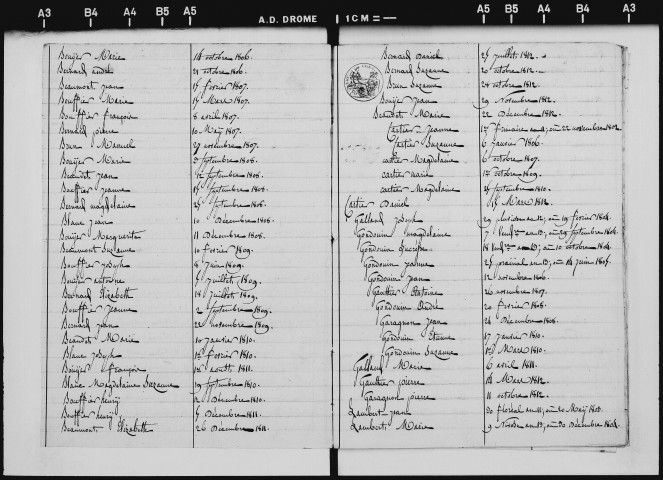 A3 B4 A4 B5 A5 A.D. DROME 1 CM A5 B5 A4 B4 A3
Bouyer Marie 14 octobre 1806.
Bernard andré 21 octobre 1806.
Beaumont jean 15 fevrier 1807.
Bouffier Marie 17 Mars 1807.
Bouffier françois 8 avril 1807.
Bernard pierre 10 Maÿ 1807.
Brun Manuel 29 novembre 1807.
Bouyer Marie septembre 1808.
Beaudet jean 12 septembre 1808.
Bouffier jeanne septembre 1808.
Bernard magdelaine septembre 1808.
Blanc jean 10 Décembre 1808.
Bouyer Marguerite 11 Décembre 1808.
Beaumont Suzanne 10 fevrier 1809.
Bouffier joseph 8 juin 1809.
Bouyer antoine 5 juillet 1809.
Bernard Elizabeth 18 juillet 1809.
Bouffier jeanne 2 septembre 1809.
Bernard jean 22 novembre 1809.
Beaudet Marie 10 janvier 1810.
Blanc joseph fevrier 1810.
Bouyer françois aoust 1811.
Blanc Magdelaine Suzanne 19 septembre 1810.
Bouffier henry Décembre 1810.
Bouffier henry 5 Décembre 1811.
Beaumont Elizabeth 26 Décembre 1811.
Bernard Daniel 25 juillet 1812.
Bernard Suzanne 20 octobre 1812.
Brun Suzanne 28 octobre 1812.
Bouyer Jean 29 Novembre 1812.
Beaudet Marie 22 Décembre 1812.
Cartier Jeanne frimaire an ; ou 22 novembre 1802.
Cartier Suzanne 6 janvier 1806.
cartier Magdelaine 6 octobre 1807.
cartier marie 17 octobre 1809.
cartier Magdelaine septembre 1810.
Cartier Daniel 15 Mars 1812.
Galland Joseph 29 pluviose an 12, ou 19 fevrier 1804.
Gondouin magdelaine an 12, ou 29 septembre 1804.
Gondouin 18 an 13, ou 10 octobre 1804.
Gondouin jeanne 25 prairial an 13, ou 14 juin 1805.
Gondouin Jean 12 novembre 1806.
Gauthier Antoine 26 novembre 1807.
Gondouin André 20 fevrier 1808.
Garagnon Jean 24 Décembre 1808.
Gondouin Etienne 17 janvier 1810.
Gondouin Suzanne Mars 1810.
Galland Marie 6 avril 1811.
Gauthier pierre 14 Mars 1812.
Garagnon pierre 11 octobre 1812.
Lambert jean 30 floréal an 11, ou 20 Maÿ 1803.
Lambert Marie 9 an 13, ou 30 Décembre 1804.